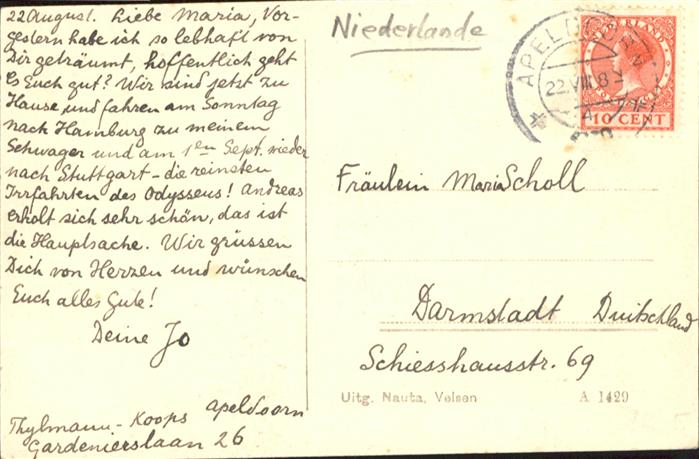 22 August. Liebe Maria, Vor-
gestern habe ich so lebhaft von
Dir geträumt, hoffentlich geht
es Euch gut? Wir sind jetzt zu
Hause und fahren am Sonntag
nach Hamburg zu meinem
Schwager und am 1en Sept. wieder
nach Stuttgart - die reinsten
Irrfahrten des Odysseus! Andreas
erholt sich sehr schön, das ist
die Hauptsache. Wir grüssen
Dich von Herzen und wünschen
Euch alles Gute!
Deine Jo
Thylmann-Koops Apeldoorn
Gardenierslaan 26
Niederlande
APELDOORN
22.VIII.8
NEDERLAND
10 CENT
Fräulein Maria Scholl
Darmstadt Duitschland
Schiesshausstr. 69
Uitg. Nauta, Velsen A 1429